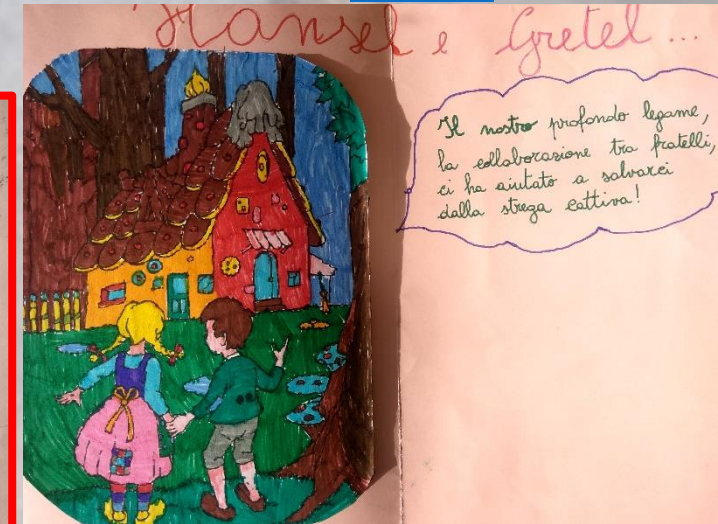 Hansel e Gretel...
Il nostro profondo legame,
la collaborazione tra fratelli,
ci ha aiutato a salvarci
dalla strega cattiva!